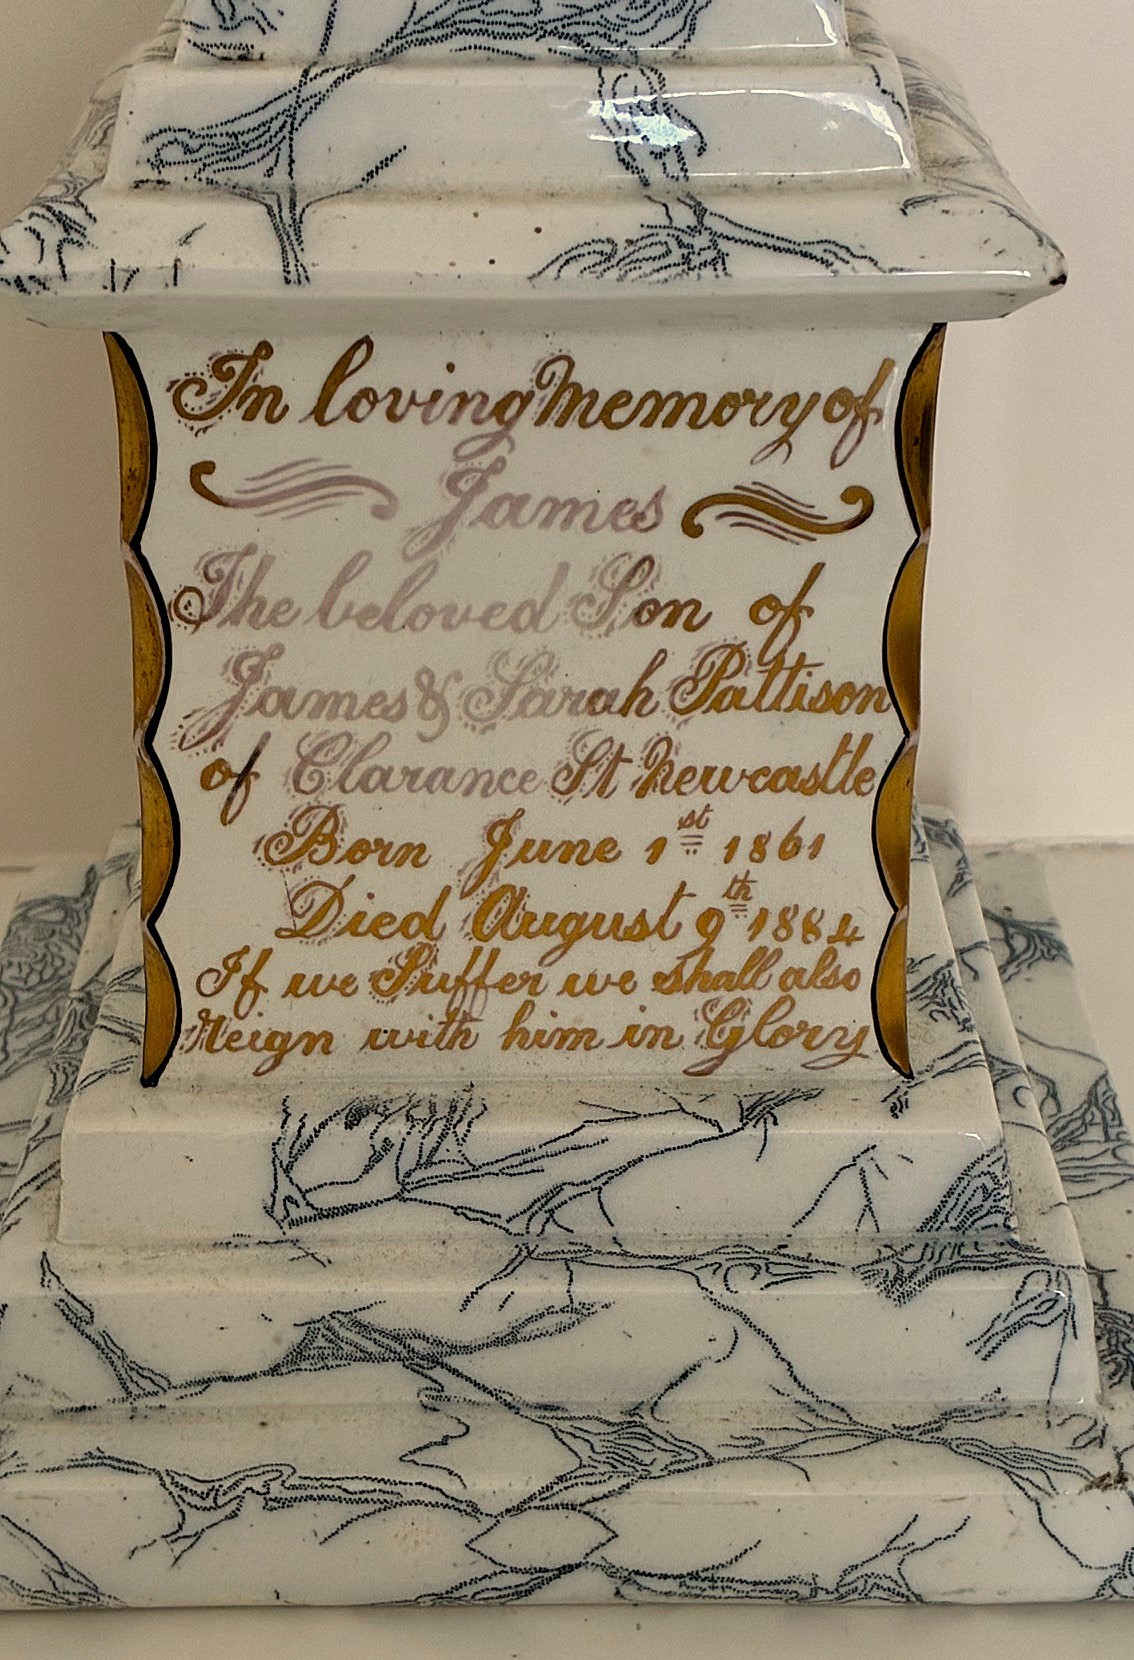 In loving Memory of
James
The beloved Son of
James & Sarah Pattison
of Clarance St Newcastle
Born June 1st 1861
Died August 9th 1884
If we Suffer we shall also
Reign with him in Glory